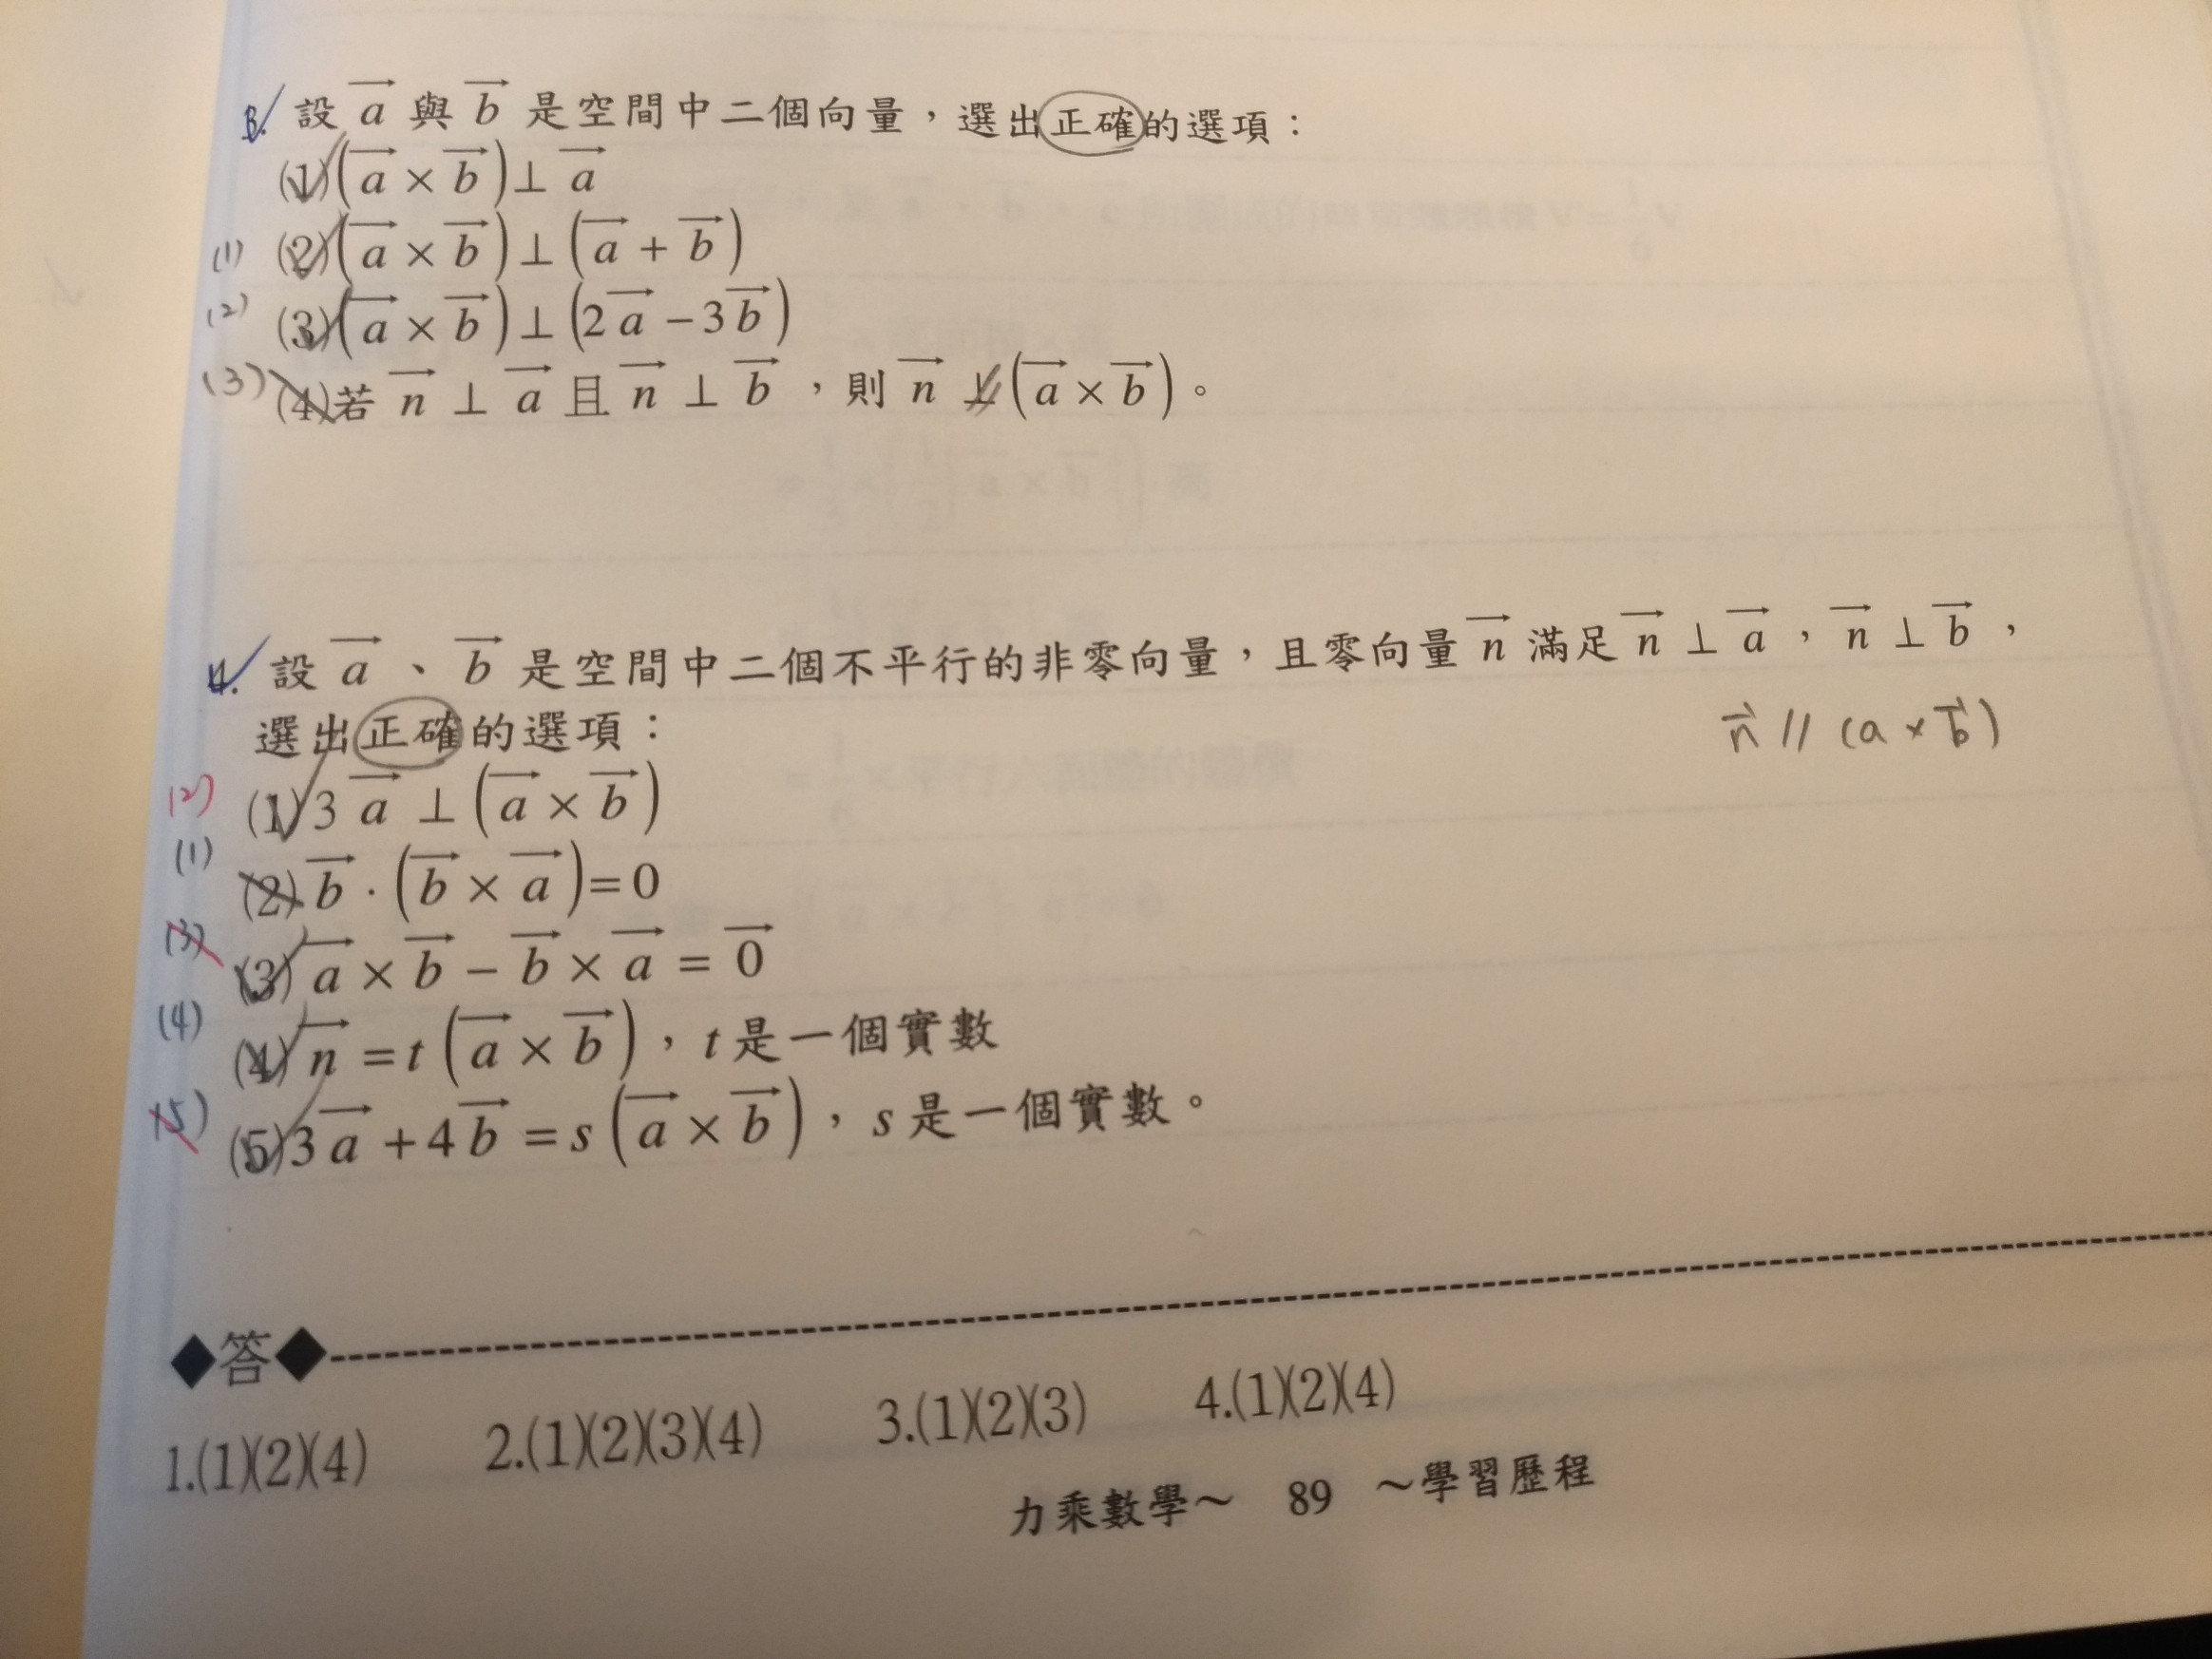 3. 設 a⃗ 與 b⃗ 是空間中二個向量，選出正確的選項：
(1)(a⃗ × b⃗)⊥ a⃗
(1) (2)(a⃗ × b⃗)⊥(a⃗ + b⃗)
(2) (3)(a⃗ × b⃗)⊥(2a⃗ − 3b⃗)
(3) (4)若 n⃗ ⊥ a⃗ 且 n⃗ ⊥ b⃗，則 n⃗ ⊥ (a⃗ × b⃗)。
4. 設 a⃗、b⃗ 是空間中二個不平行的非零向量，且零向量 n⃗ 滿足 n⃗ ⊥ a⃗，n⃗ ⊥ b⃗，
選出正確的選項：
n⃗ // (a × b⃗)
(2) (1) 3a⃗ ⊥ (a⃗ × b⃗)
(1) (2) b⃗ · (b⃗ × a⃗) = 0
(3) (3) a⃗ × b⃗ − b⃗ × a⃗ = 0⃗
(4) (4) n⃗ = t(a⃗ × b⃗)，t 是一個實數
(5) (5) 3a⃗ + 4b⃗ = s(a⃗ × b⃗)，s 是一個實數。
◆答◆
1.(1)(2)(4) 2.(1)(2)(3)(4) 3.(1)(2)(3) 4.(1)(2)(4)
力乘數學～ 89 ～學習歷程